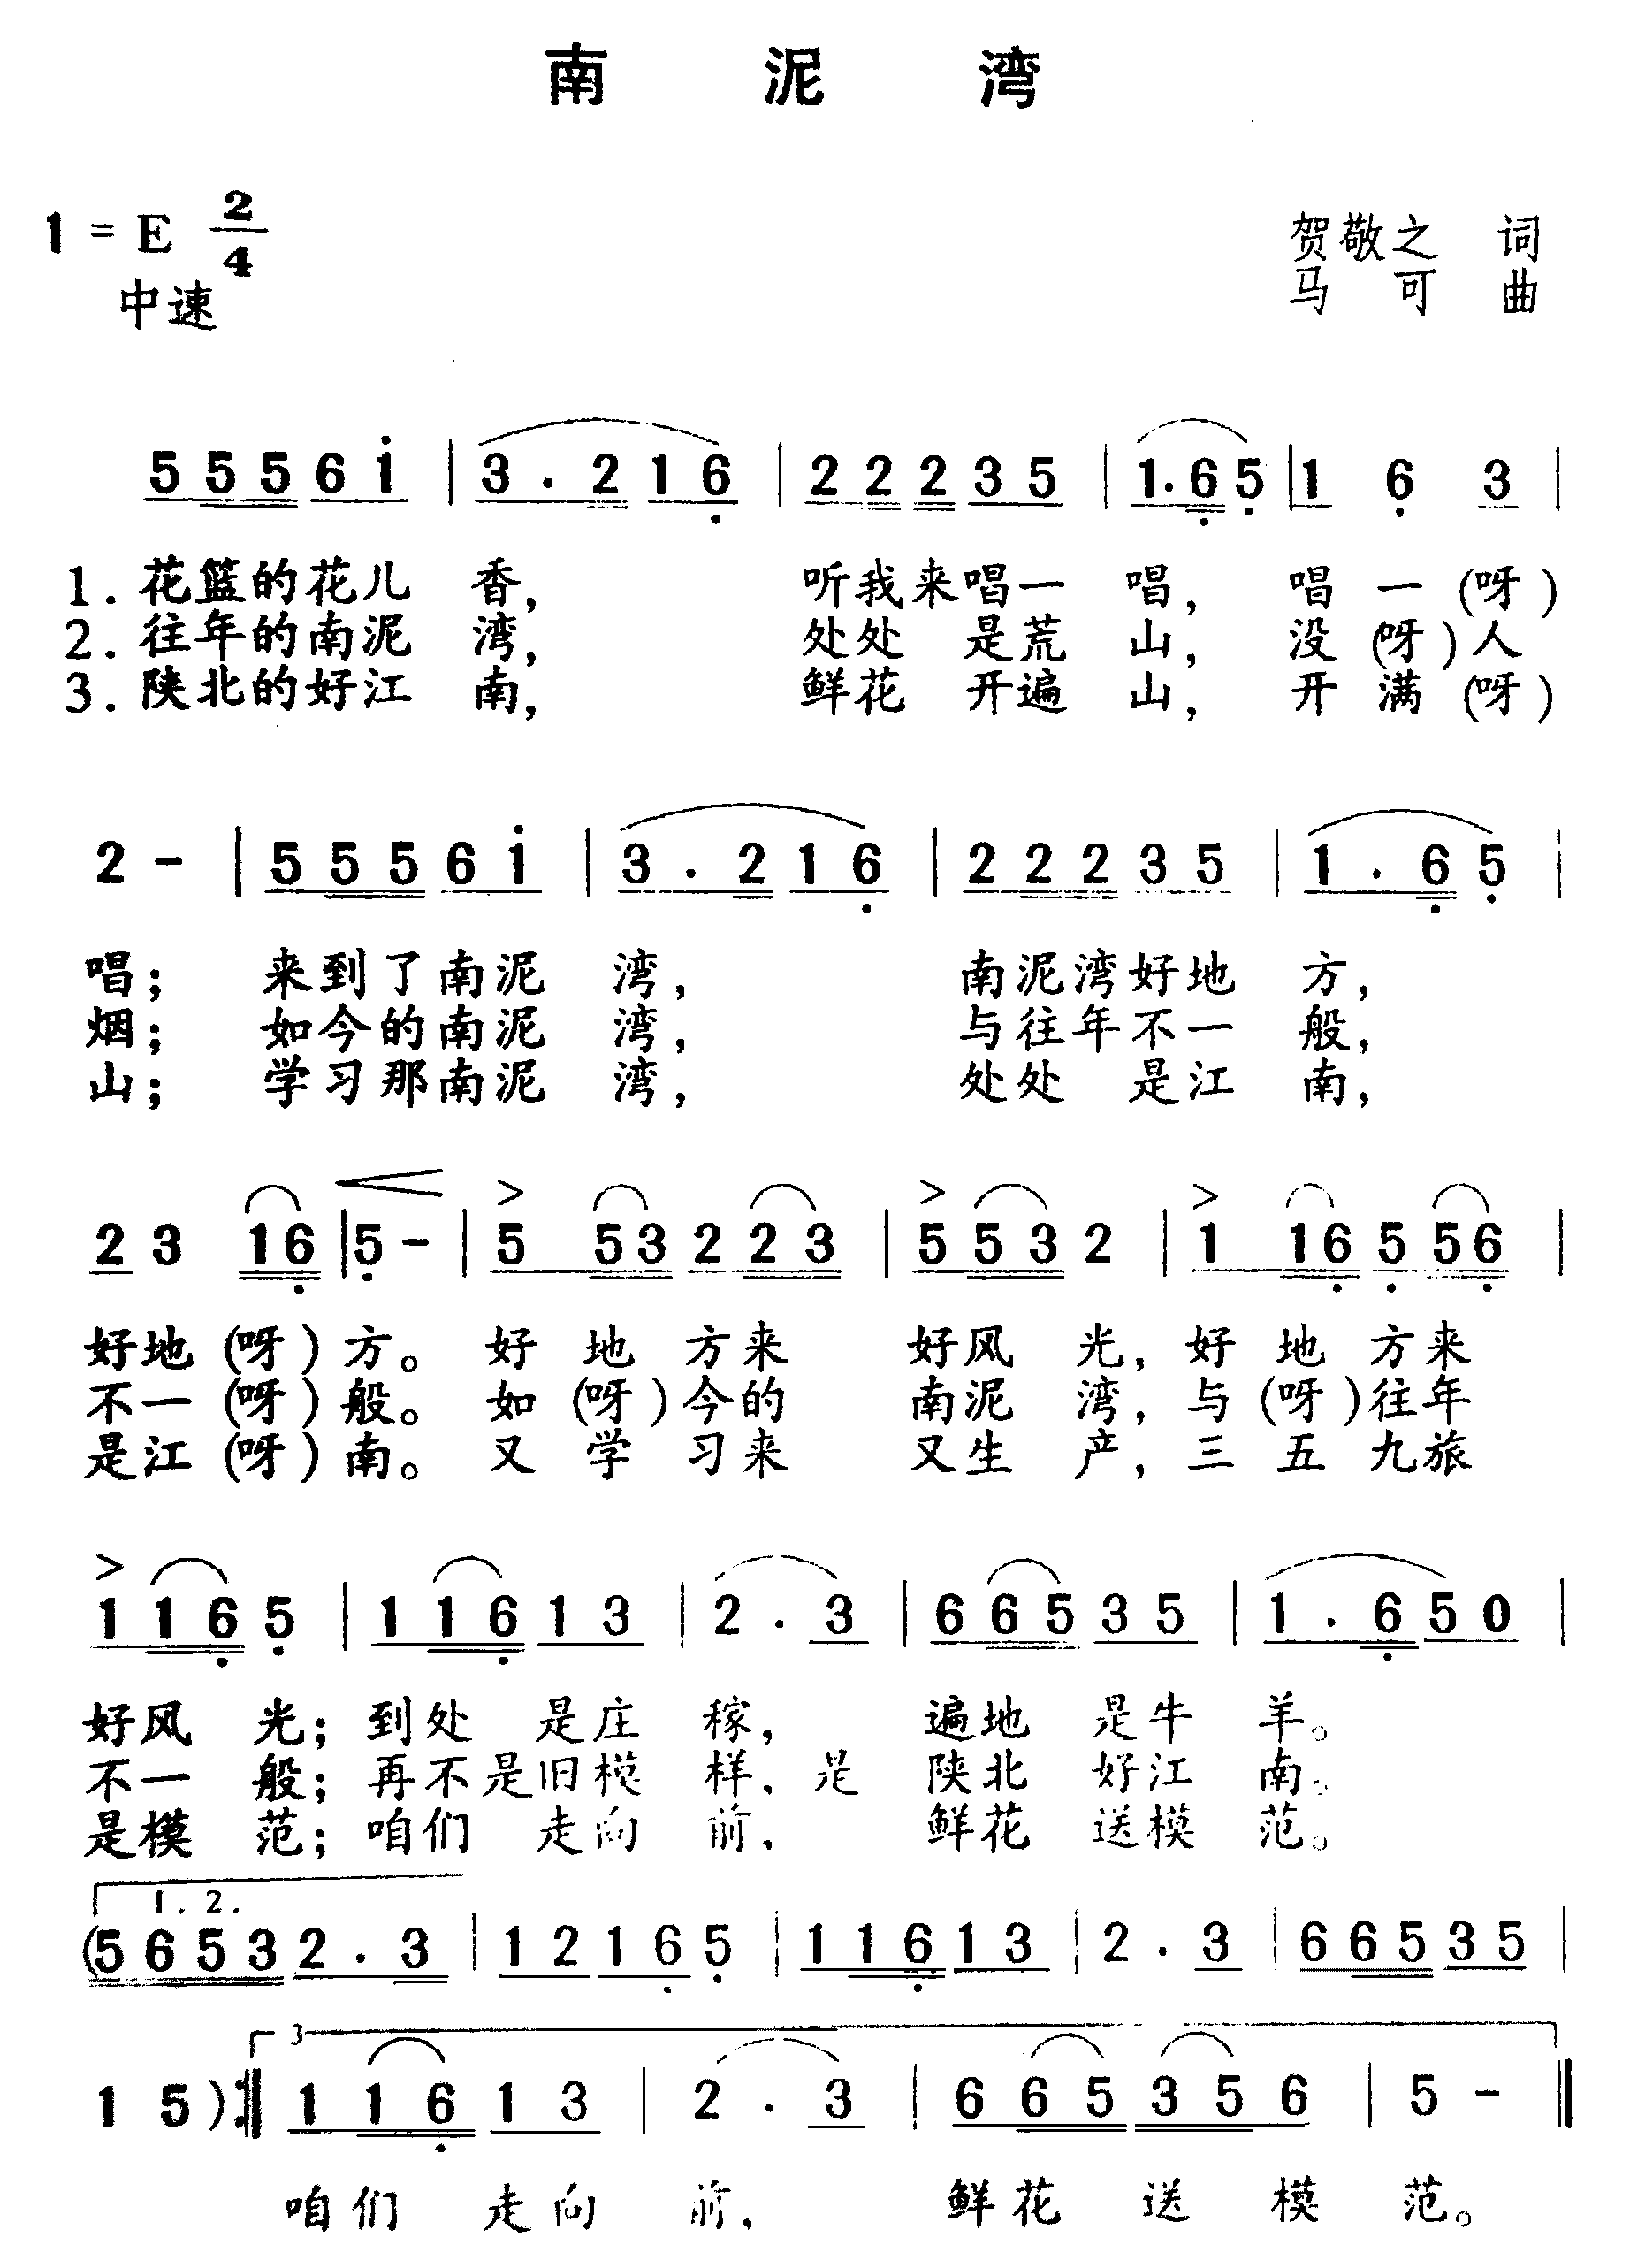 南 泥 湾
1 = E 2/4
贺敬之 词
中速
马 可 曲
5 5 5 6 i | 3 . 2 1 6 | 2 2 2 3 5 | 1 . 6 5 | 1 6 3 |
1. 花篮的花儿 香, 听我来唱一 唱, 唱 一 (呀)
2. 往年的南泥 湾, 处处 是荒 山, 没 (呀) 人
3. 陕北的好江 南, 鲜花 开遍 山, 开 满 (呀)
2 - | 5 5 5 6 i | 3 . 2 1 6 | 2 2 2 3 5 | 1 . 6 5 |
唱; 来到了南泥 湾, 南泥湾好地 方,
烟; 如今的南泥 湾, 与往年不一 般,
山; 学习那南泥 湾, 处处 是江 南,
2 3 1 6 | 5 - | 5 5 3 2 2 3 | 5 5 3 2 | 1 1 6 5 5 6 |
好地 (呀) 方。 好 地 方来 好风 光, 好 地 方来
不一 (呀) 般。 如 (呀) 今的 南泥 湾, 与 (呀) 往年
是江 (呀) 南。 又 学 习来 又生 产, 三 五 九旅
1 1 6 5 | 1 1 6 1 3 | 2 . 3 | 6 6 5 3 5 | 1 . 6 5 0 |
好风 光; 到处 是庄 稼, 遍地 是牛 羊。
不一 般; 再不是旧模 样, 是 陕北 好江 南。
是模 范; 咱们 走向 前, 鲜花 送模 范。
1. 2.
(5 6 5 3 2 . 3 | 1 2 1 6 5 | 1 1 6 1 3 | 2 . 3 | 6 6 5 3 5 |
3
1 5 ) :‖ 1 1 6 1 3 | 2 . 3 | 6 6 5 3 5 6 | 5 - ‖
咱们 走向 前, 鲜花 送 模 范。